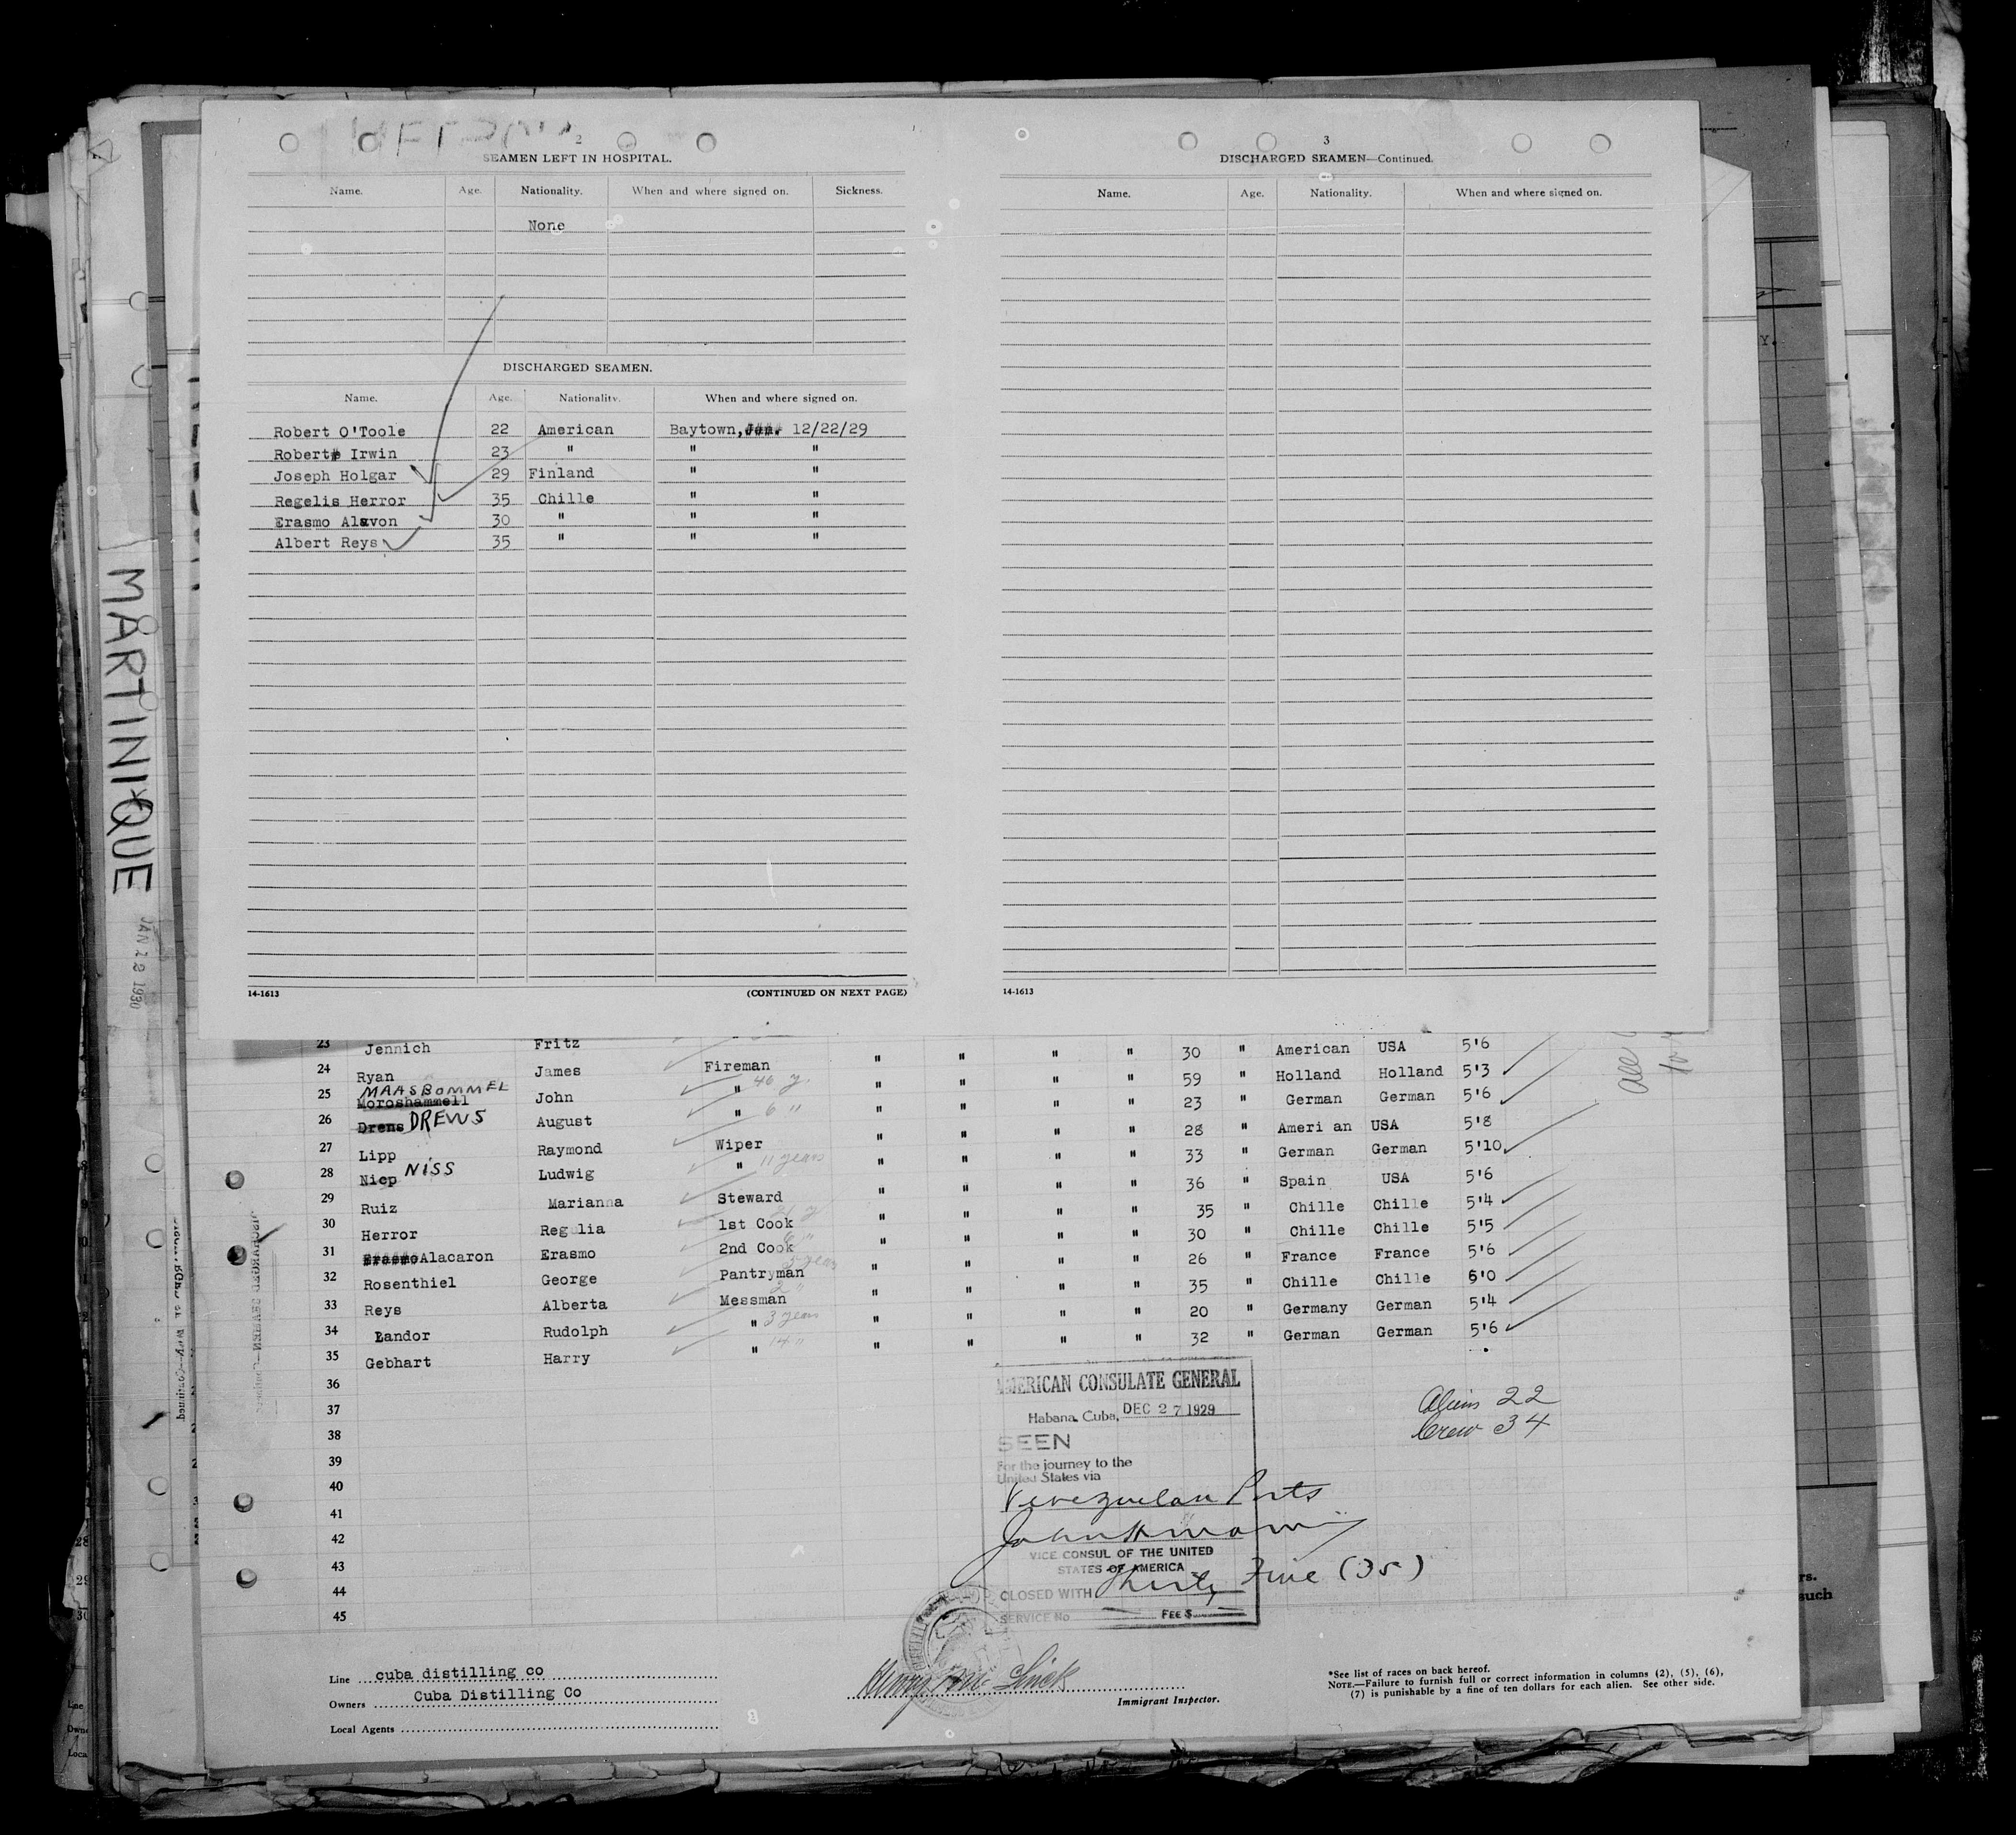 2
SEAMEN LEFT IN HOSPITAL.
Name. Age. Nationality. When and where signed on. Sickness.
None
DISCHARGED SEAMEN.
Name. Age. Nationality. When and where signed on.
Robert O'Toole 22 American Baytown, 12/22/29
Robert Irwin 23 " " "
Joseph Holgar 29 Finland " "
Regelis Herror 35 Chille " "
Erasmo Alavon 30 " " "
Albert Reys 35 " " "
14-1613 (CONTINUED ON NEXT PAGE)
3
DISCHARGED SEAMEN—Continued.
Name. Age. Nationality. When and where signed on.
14-1613
MARTINIQUE
JAN 1930
23 Jennich Fritz " " " " 30 " American USA 5'6
24 Ryan James Fireman " " " " 59 " Holland Holland 5'3
25 MAASBOMMEL Moroshammell John " 46 y. " " " " 23 " German German 5'6
26 Drens DREWS August " 6 " " " " " 28 " Ameri an USA 5'8
27 Lipp Raymond Wiper " " " " 33 " German German 5'10
28 Nicp NISS Ludwig " 11 years " " " " 36 " Spain USA 5'6
29 Ruiz Marianna Steward " " " " 35 " Chille Chille 5'4
30 Herror Regolia 1st Cook " " " " 30 " Chille Chille 5'5
31 Erasmo Alacaron Erasmo 2nd Cook " " " " 26 " France France 5'6
32 Rosenthiel George Pantryman " " " " 35 " Chille Chille 6'0
33 Reys Alberta Messman " " " " 20 " Germany German 5'4
34 Landor Rudolph " 3 years " " " " 32 " German German 5'6
35 Gebhart Harry " 14 "
36
37
38
39
40
41
42
43
44
45
AMERICAN CONSULATE GENERAL
Habana, Cuba, DEC 27 1929
SEEN
For the journey to the
United States via
Venezuelan Ports
VICE CONSUL OF THE UNITED
STATES OF AMERICA
CLOSED WITH Thirty Five (35)
SERVICE No FEE $
Aliens 22
Crew 34
Line cuba distilling co
Owners Cuba Distilling Co
Local Agents
Immigrant Inspector.
*See list of races on back hereof.
NOTE.—Failure to furnish full or correct information in columns (2), (5), (6),
(7) is punishable by a fine of ten dollars for each alien. See other side.